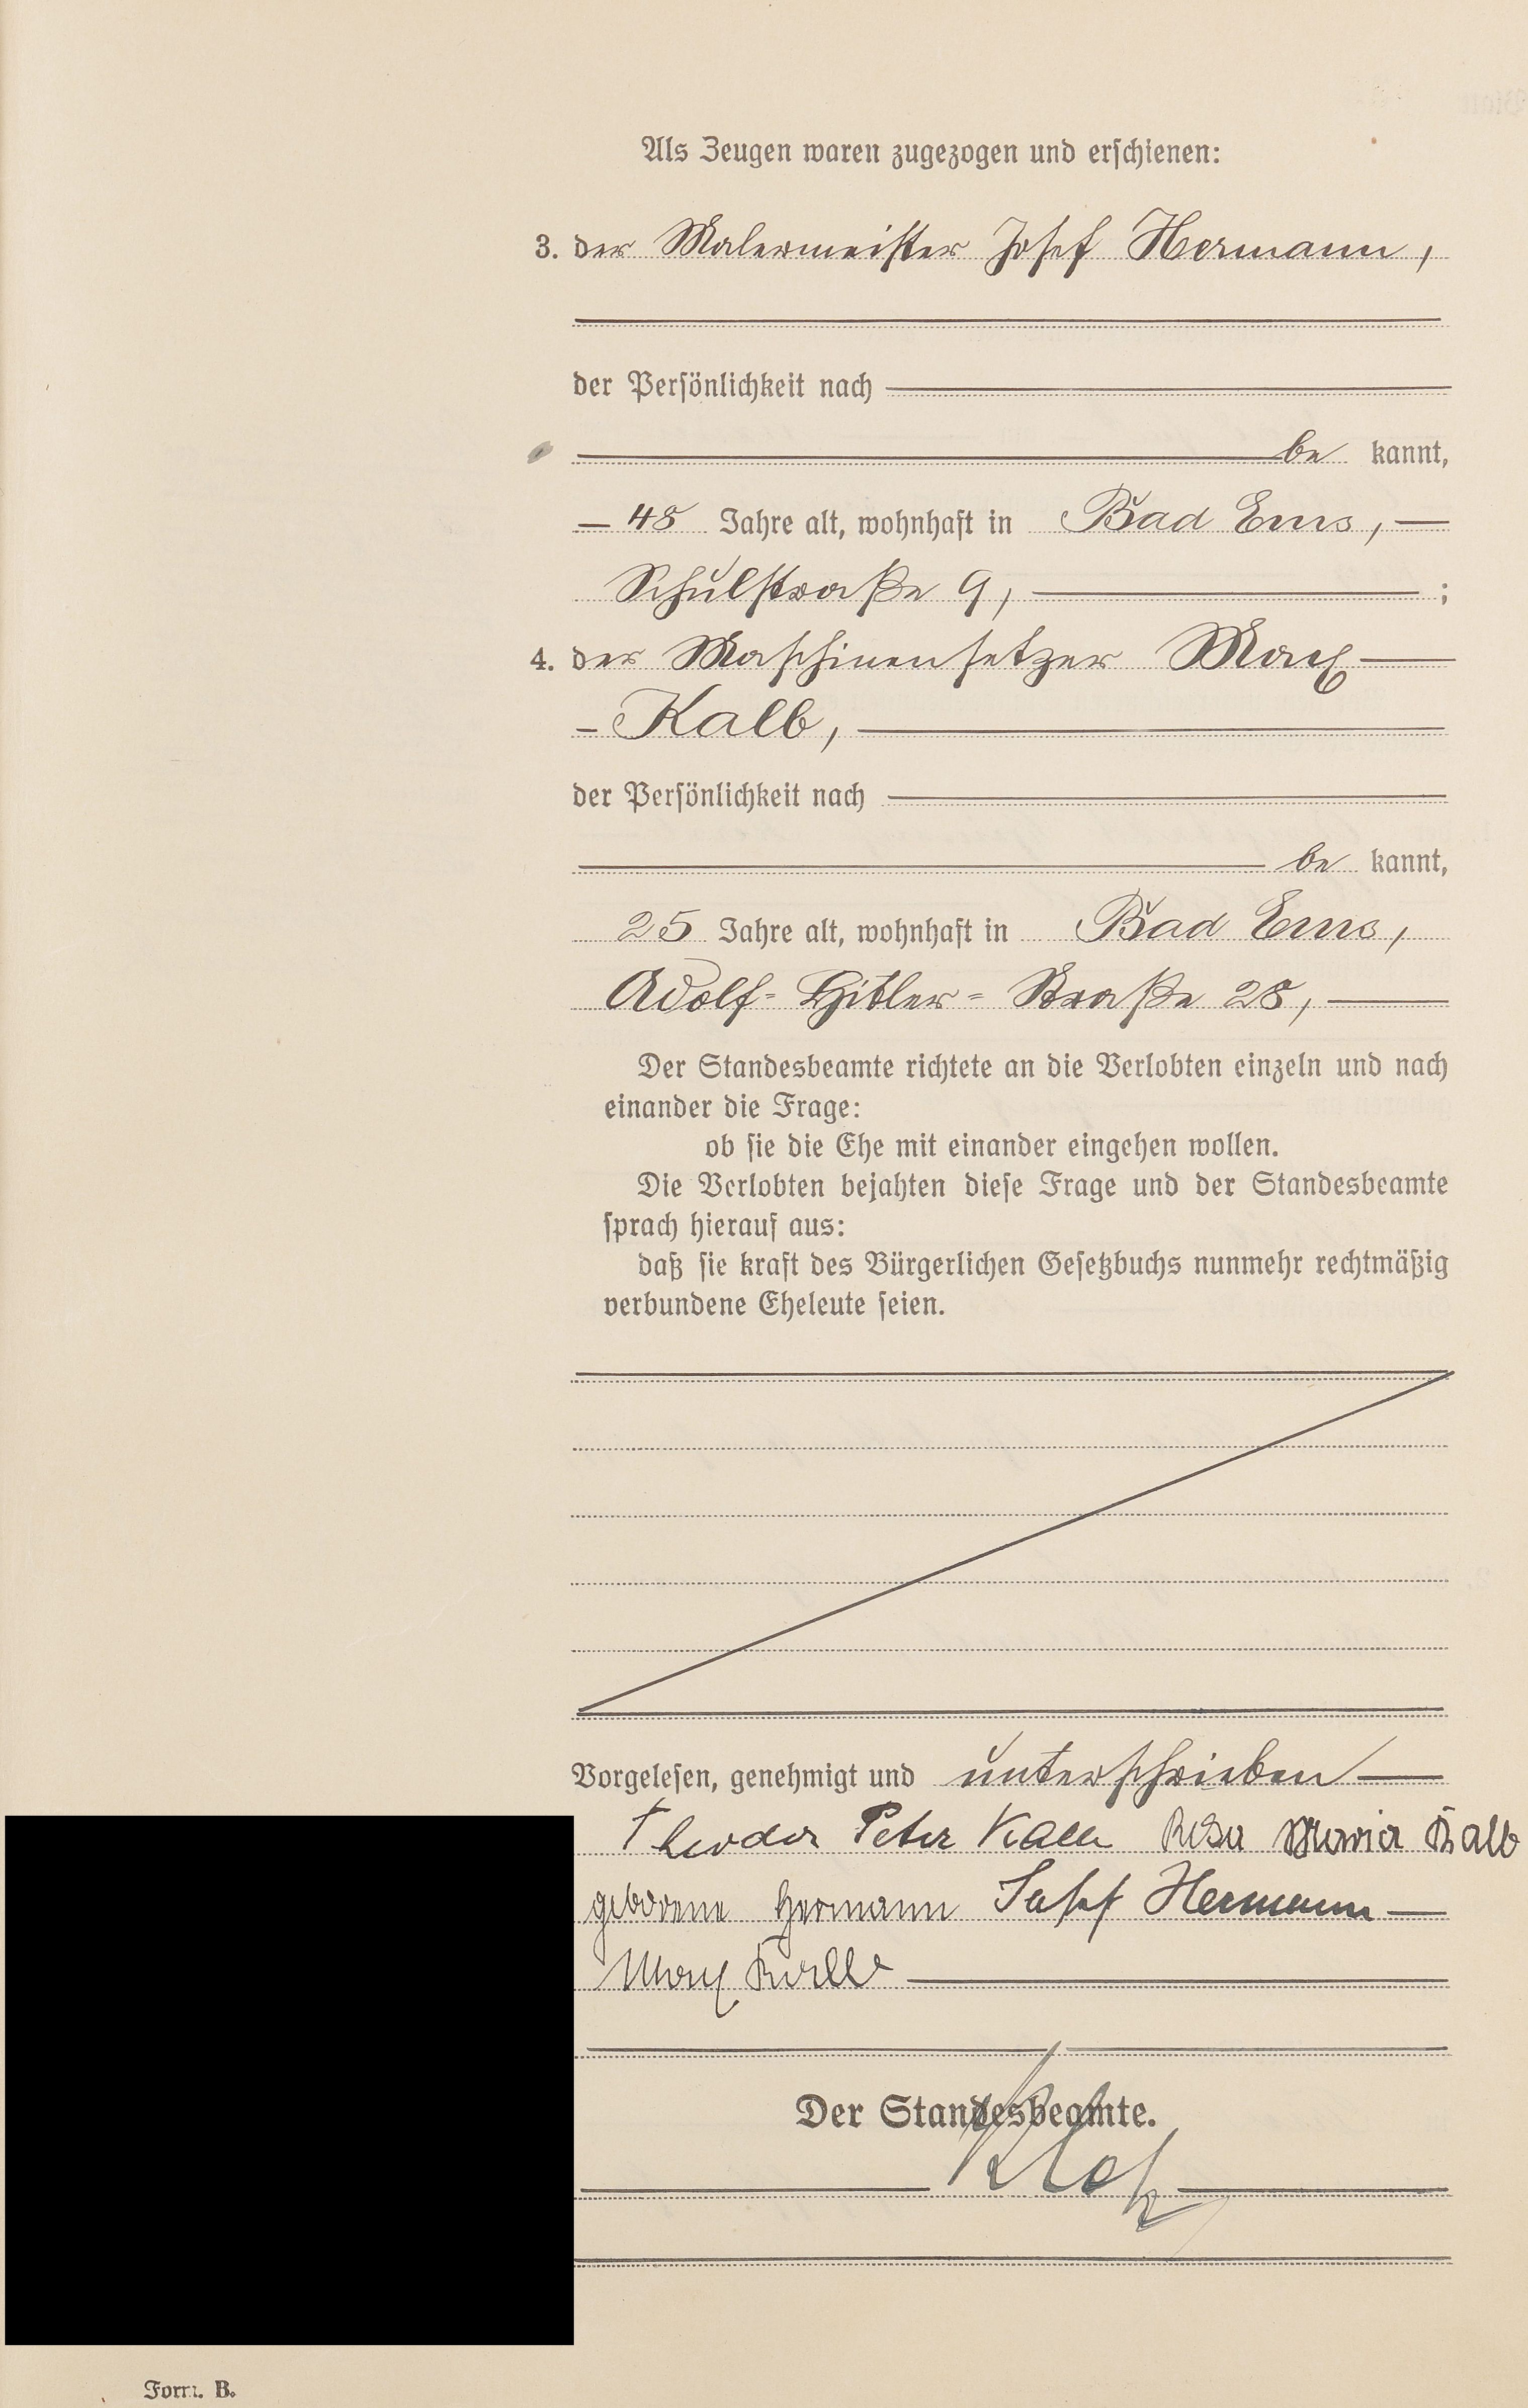 Als Zeugen waren zugezogen und erschienen:
3. der Malermeister Josef Hermann,
der Persönlichkeit nach
be kannt,
48 Jahre alt, wohnhaft in Bad Ems,
Schulstraße 9, ;
4. der Maschinensetzer Max
Kalb,
der Persönlichkeit nach
be kannt,
25 Jahre alt, wohnhaft in Bad Ems,
Adolf-Hitler-Straße 28,
Der Standesbeamte richtete an die Verlobten einzeln und nach
einander die Frage:
ob sie die Ehe mit einander eingehen wollen.
Die Verlobten bejahten diese Frage und der Standesbeamte
sprach hierauf aus:
daß sie kraft des Bürgerlichen Gesetzbuchs nunmehr rechtmäßig
verbundene Eheleute seien.
Vorgelesen, genehmigt und unterschrieben
Theodor Peter Kalb Rosa Maria Kalb
geborene Hermann Josef Hermann
Max Kalb
Der Standesbeamte.
Form. B.